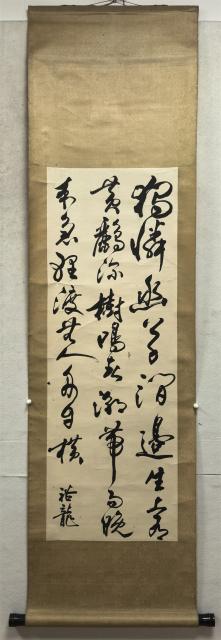 獨憐幽草澗邊生上有
黃鸝深樹鳴春潮帶雨晚
來急野渡無人舟自橫
龍